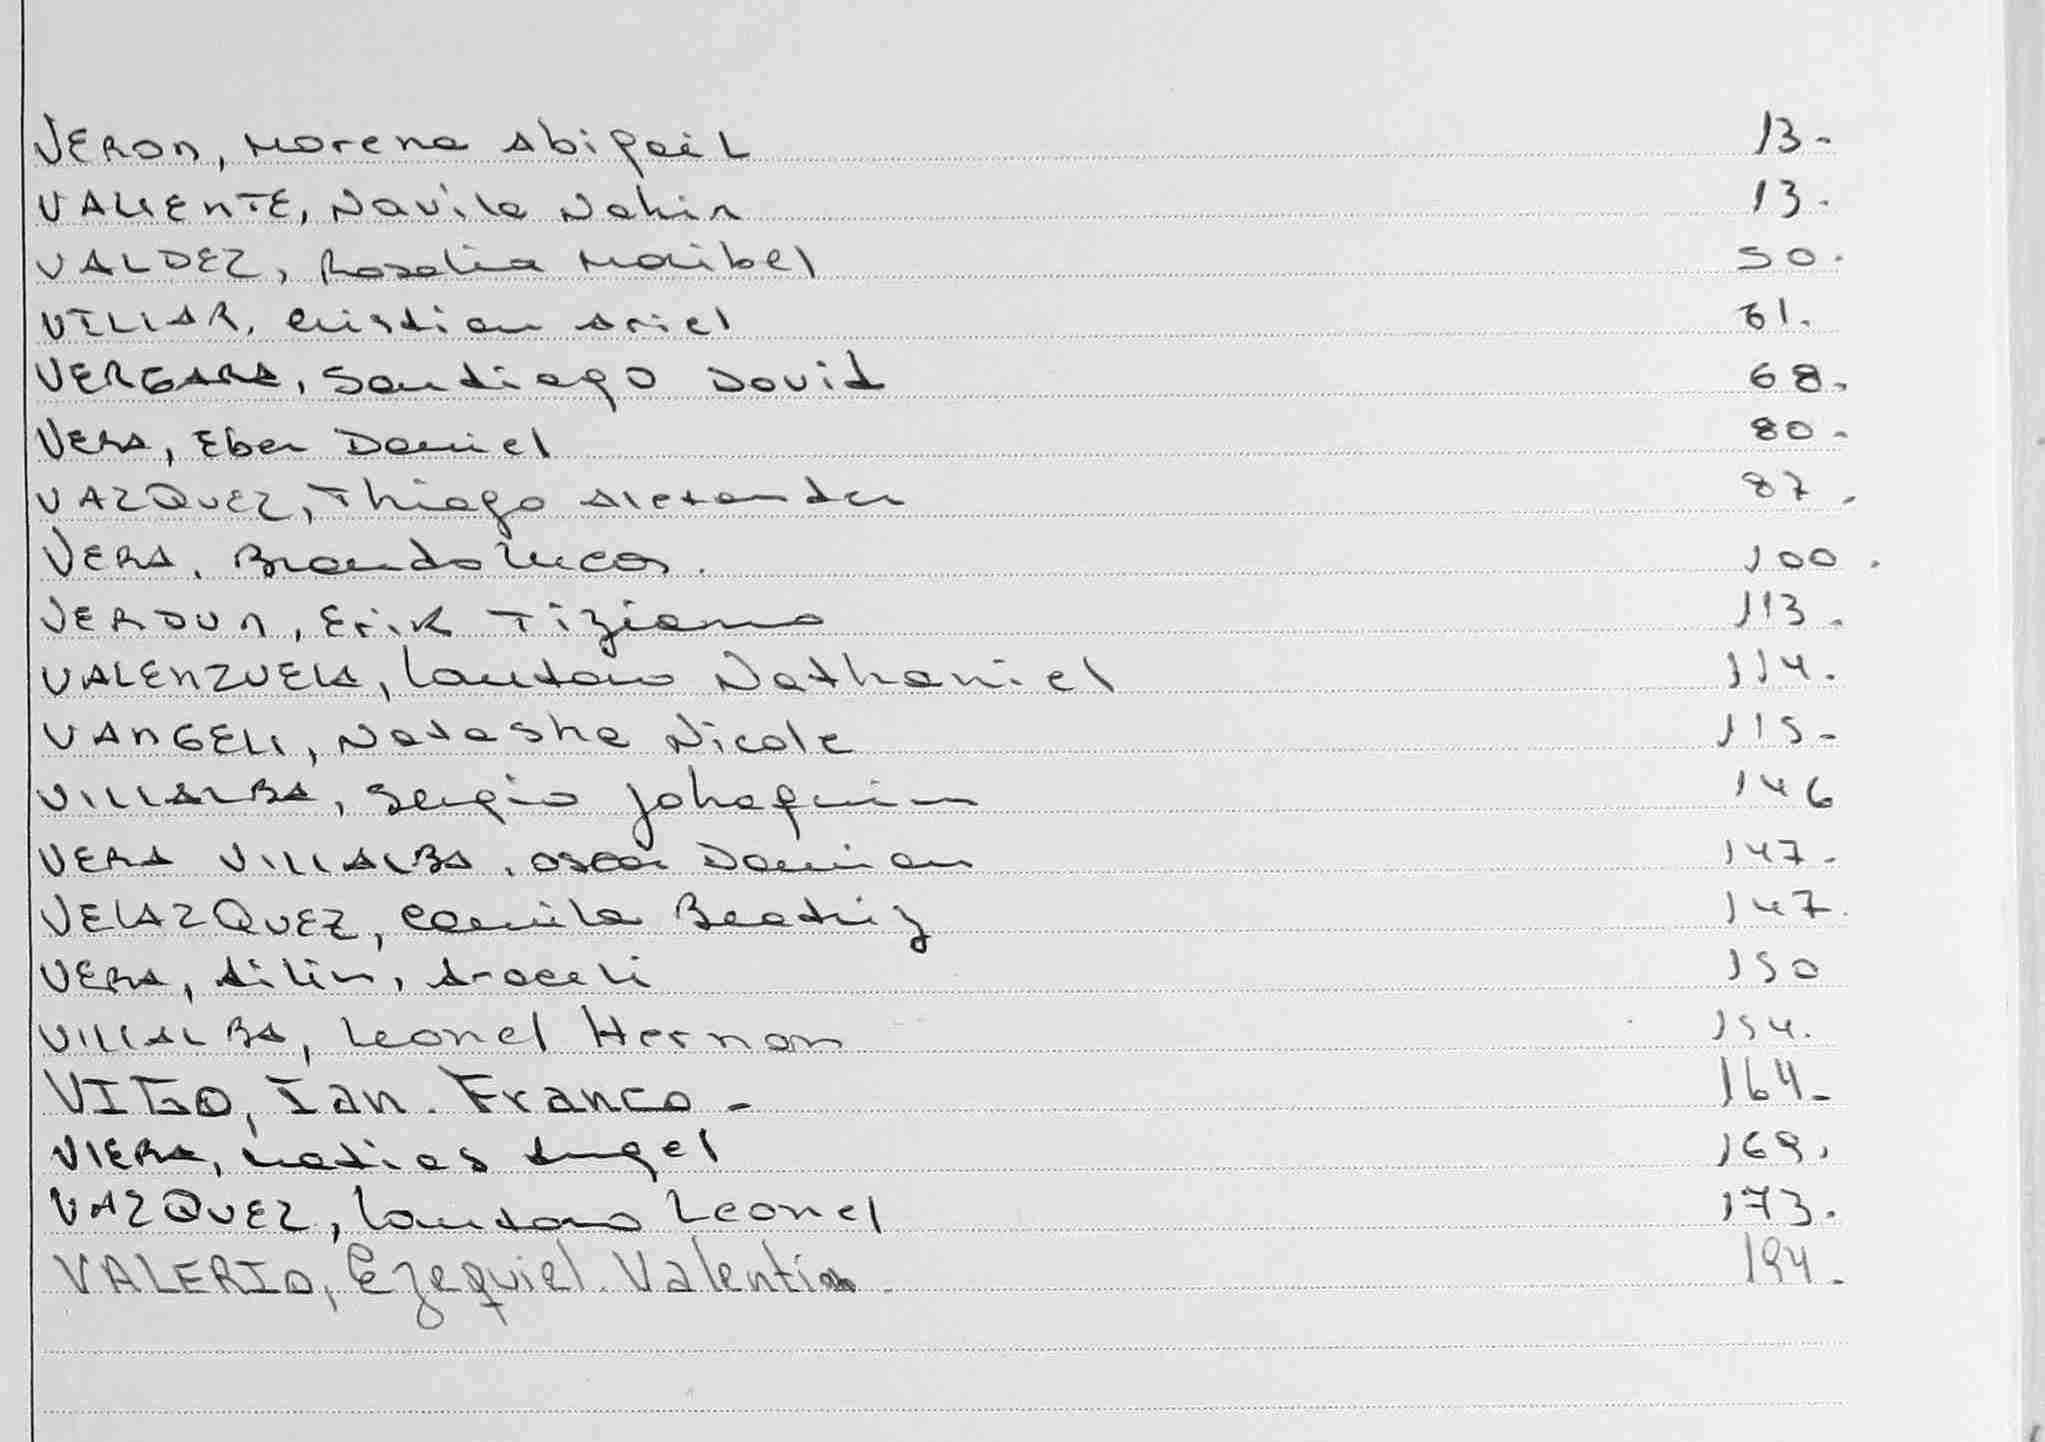 VERON, Morena Abigail 13.
VALIENTE, Navila Nahir 13.
VALDEZ, Rosalia Maribel 50.
VILLAR, Cristian Ariel 61.
VERGARA, Santiago David 68.
VERA, Eber Daniel 80.
VAZQUEZ, Thiago Alexander 87.
VERA, Brando Lucas. 100.
VERDUN, Erik Tiziano 113.
VALENZUELA, Lautaro Nathaniel 114.
VANGELI, Natasha Nicole 115.
VILLALBA, Sergio Johaquin 146
VERA VILLALBA, Oscar Damian 147.
VELAZQUEZ, Camila Beatriz 147.
VERA, Ailin, Araceli 150
VILLALBA, Leonel Hernan 154.
VIGO, Ian. Franco - 164-
VIERA, Matias Angel 169.
VAZQUEZ, Lautaro Leonel 173.
VALERIO, Ezequiel. Valentin. 194.